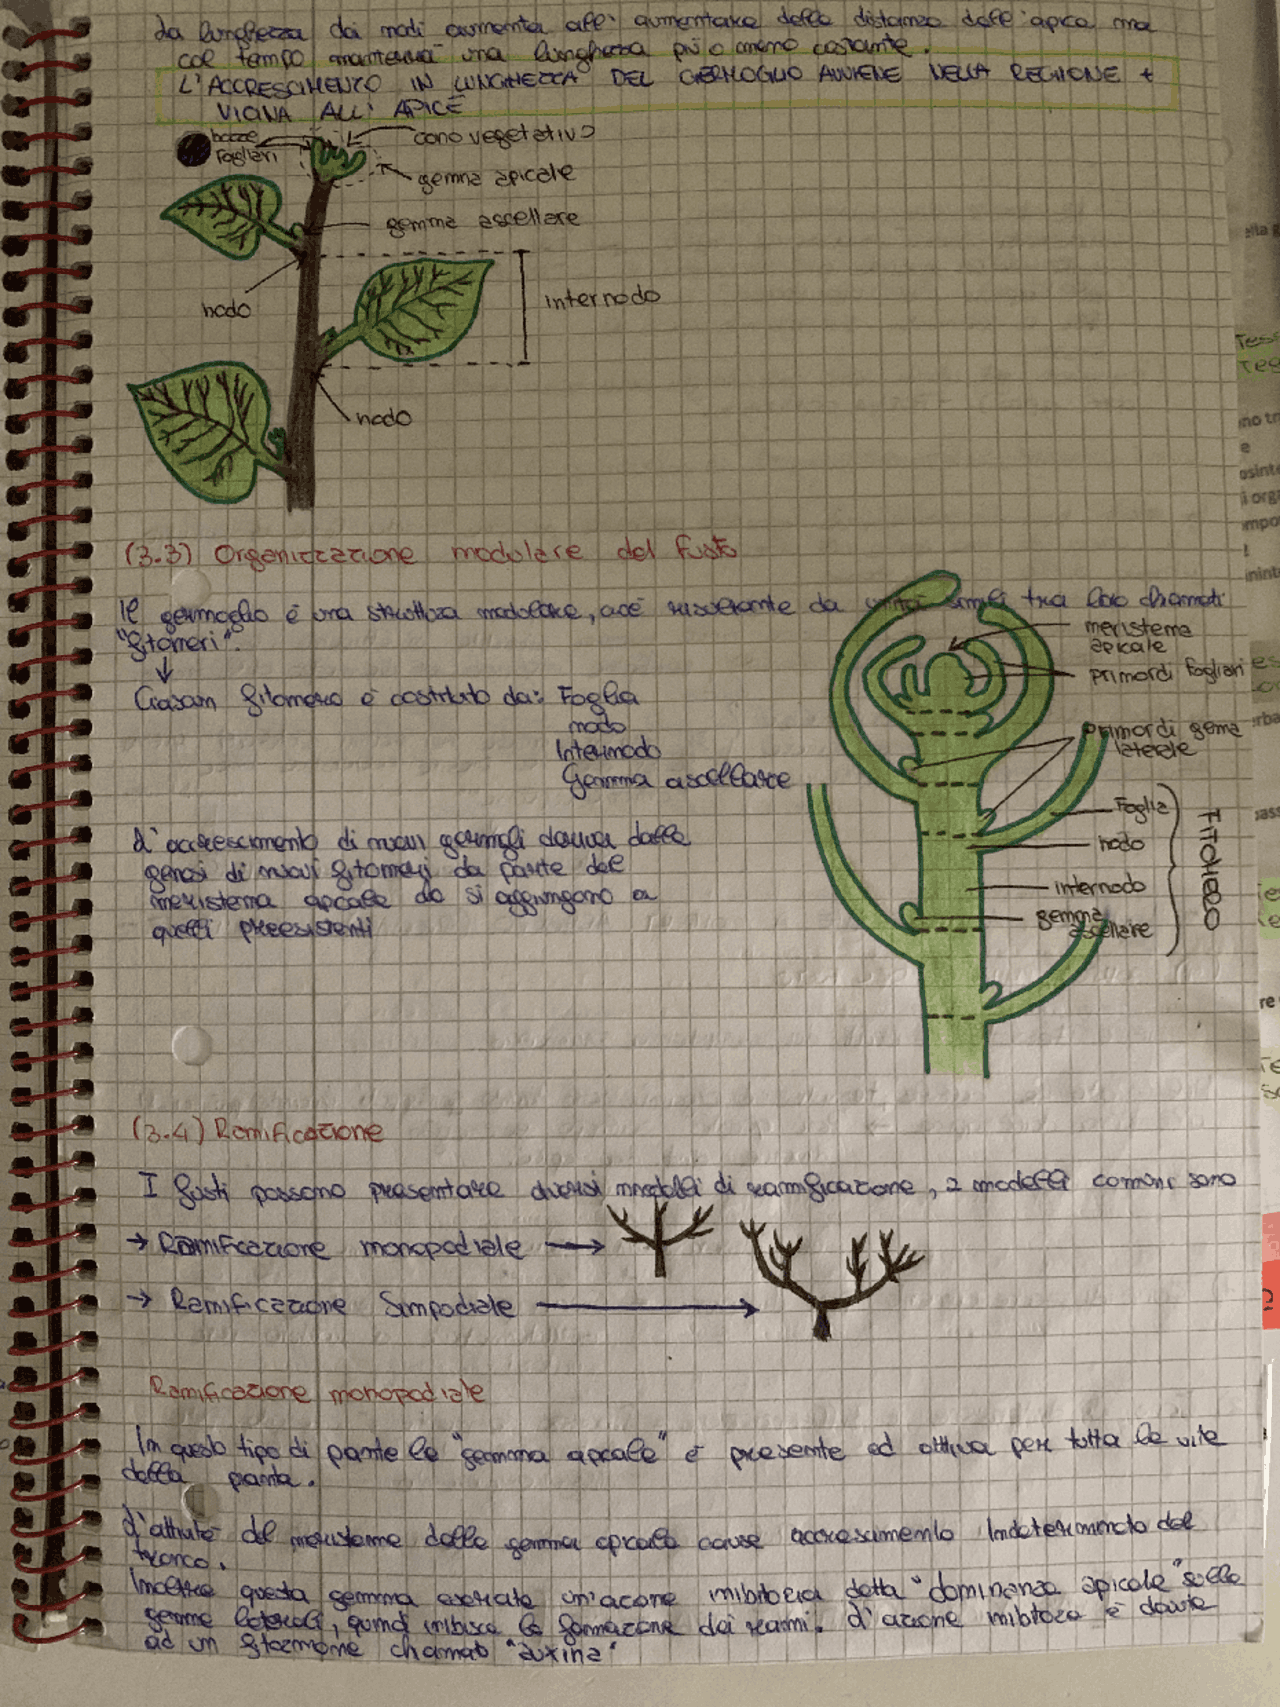 La lunghezza dei nodi aumenta all'aumentare della distanza dall'apice ma
col tempo manterrà una lunghezza più o meno costante.
L'ACCRESCIMENTO IN LUNGHEZZA DEL GERMOGLIO AVVIENE NELLA REGIONE +
VICINA ALL'APICE
bozze
fogliari
cono vegetativo
gemma apicale
gemma ascellare
nodo
internodo
nodo
(3.3) Organizzazione modulare del fusto
Il germoglio è una struttura modulare, cioè risultante da unità simili tra loro chiamati
"fitomeri".
meristema
apicale
primordi fogliari
Ciascun fitomero è costituito da: Foglia
nodo
Internodo
Gemma ascellare
primordi gema
laterale
Foglia
nodo
internodo
gemma
ascellare
FITOMERO
L'accrescimento di nuovi germogli deriva dalla
genesi di nuovi fitomeri da parte del
meristema apicale che si aggiungono a
quelli preesistenti
(3.4) Ramificazione
I fusti possono presentare diversi modelli di ramificazione, 2 modelli comuni sono
→ Ramificazione monopodiale →
→ Ramificazione Simpodiale →
Ramificazione monopodiale
In questo tipo di piante la "gemma apicale" è presente ed attiva per tutta la vita
della pianta.
L'attività del meristema della gemma apicale causa accrescimento Indeterminato del
tronco.
Inoltre questa gemma esercita un'azione inibitoria detta "dominanza apicale" sulle
gemme laterali, quindi inibisce la formazione dei rami. L'azione inibitoria è dovuta
ad un fitormone chiamato "auxina"